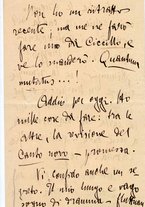 Non ho un ritratto
recente, ma me ne farò
fare uno da Ciccillo, e
te lo manderò. Quantum
mutatus...!
Addio per oggi. Ho
mille cose da fare: tra le
altre, la revisione del
Canto novo – promessa.
Vi confido anche un se-
greto. Il mio lungo e vago
sogno di dramma